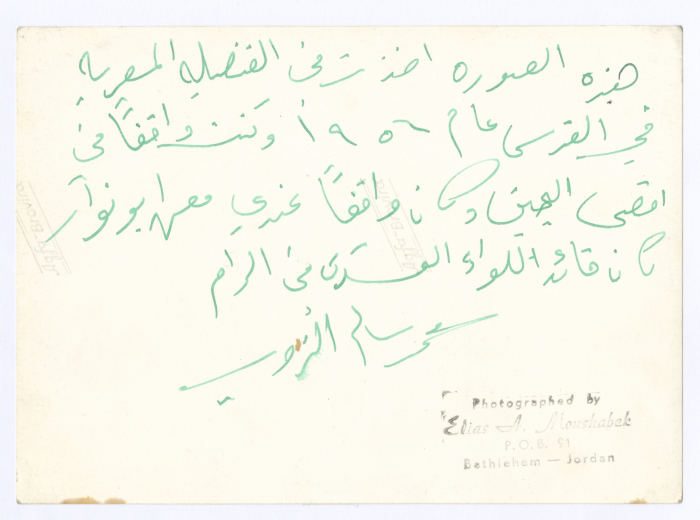 هذه الصوره اخذت في القنصليه المصرية
في القدس عام ١٩٥٦ وكنت واقفاً في
اقصى اليمين وكان واقفاً عندي معن ابو نوار
كان قائد اللواء في الرام
سالم
Photographed by
Elias A. Moushabek
P.O.B. 91
Bethlehem — Jordan